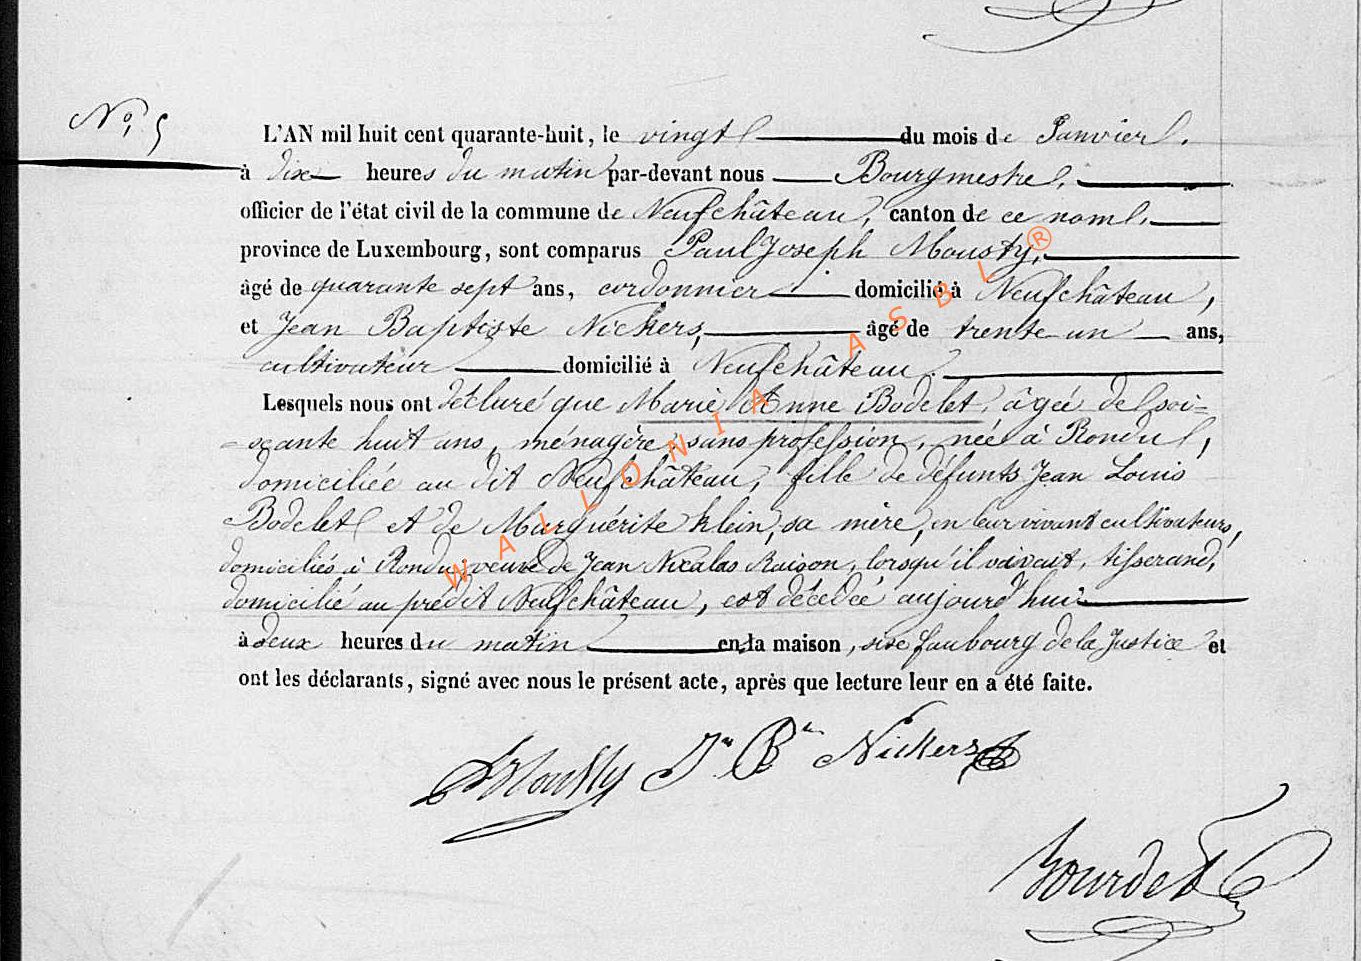 N°. 5
L'AN mil huit cent quarante-huit, le vingt du mois de Janvier.
à dix heures du matin par-devant nous Bourgmestre,
officier de l'état civil de la commune de Neufchâteau, canton de ce nom,
province de Luxembourg, sont comparus Paul Joseph Mousty,
âgé de quarante sept ans, cordonnier domicilié à Neufchâteau,
et Jean Baptiste Nickers, âgé de trente-un ans,
cultivateur domicilié à Neufchâteau.
Lesquels nous ont déclaré que Marie Anne Bodelet, âgée de soi=
=xante huit ans, ménagère, sans profession, née à Rondu,
domiciliée au dit Neufchâteau, fille de défunts Jean Louis
Bodelet et de Marguérite Klein, sa mère, en leur vivant cultivateurs,
domiciliés à Rondu, veuve de Jean Nicolas Raison, lorsqu'il vivait, tisserand,
domicilié au prédit Neufchâteau, est décédée aujourd'hui
à deux heures du matin en la maison, sise faubourg de la Justice et
ont les déclarants, signé avec nous le présent acte, après que lecture leur en a été faite.
Mousty Jn Bte Nickers
Bourdet
WALLONIA ASBL ®